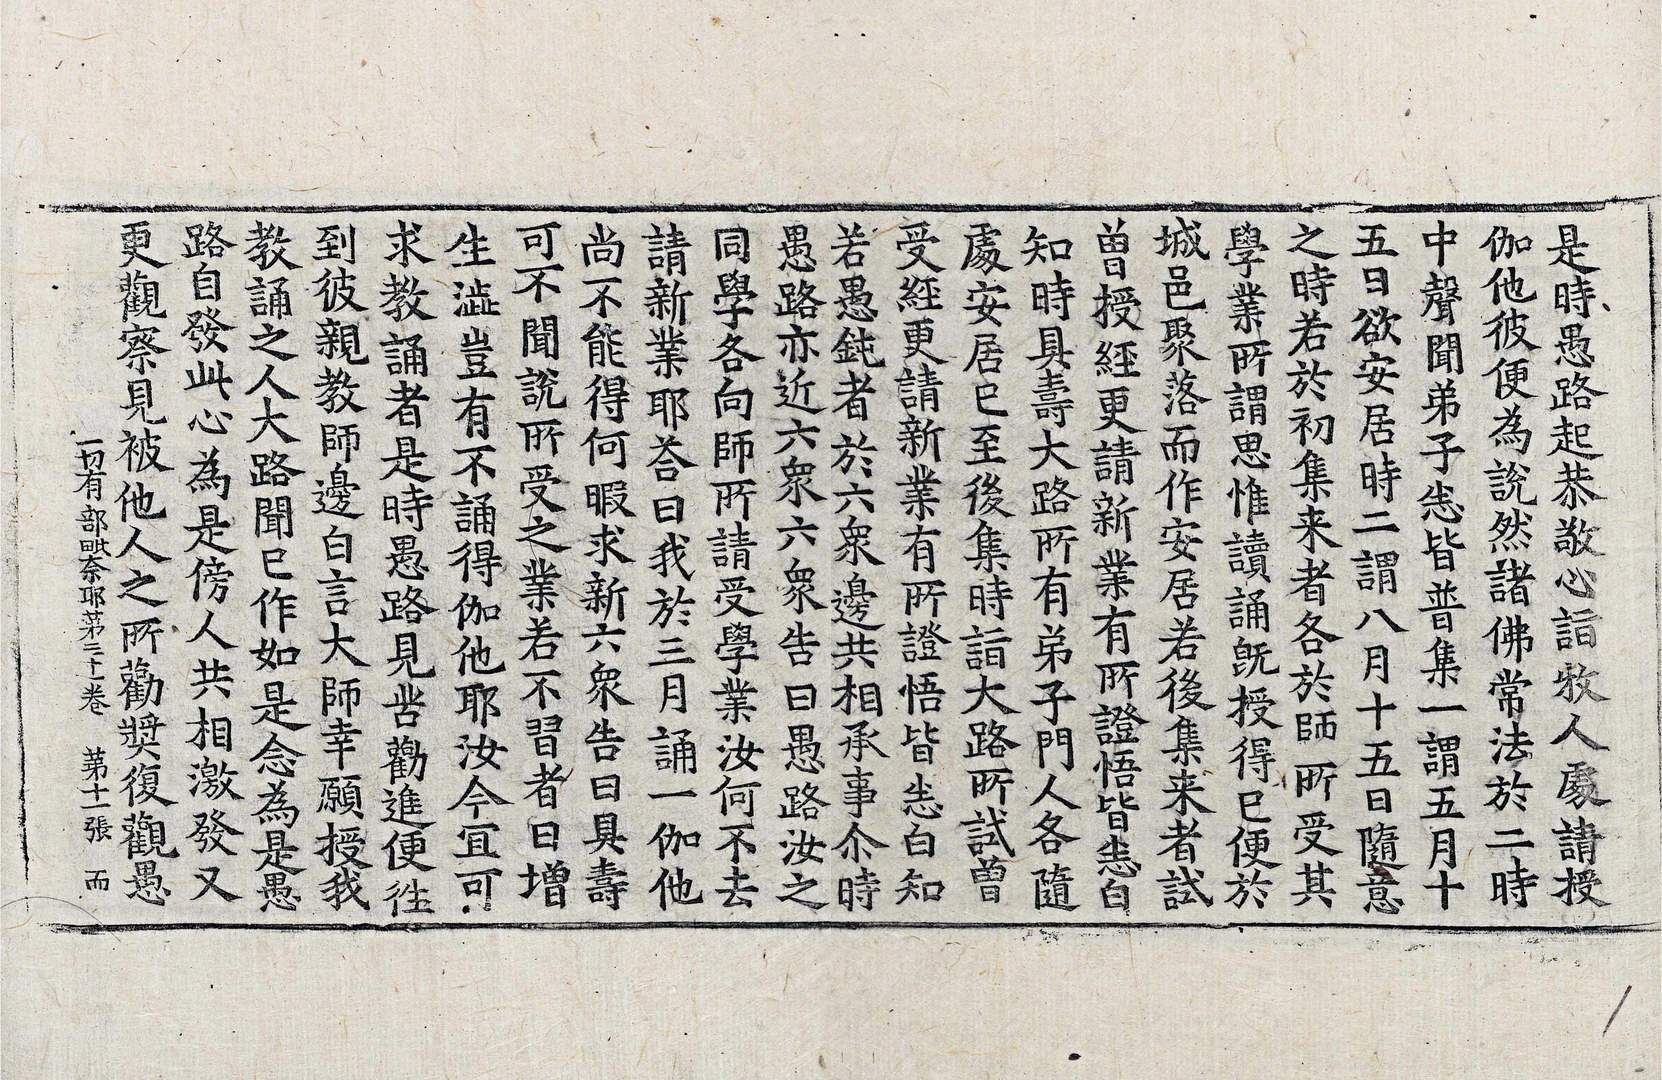 是時愚路起恭敬心詣牧人處請授
伽他彼便為說然諸佛常法於二時
中聲聞弟子悉皆普集一謂五月十
五日欲安居時二謂八月十五日隨意
之時若於初集来者各於師所受其
學業所謂思惟讀誦旣授得已便於
城邑聚落而作安居若後集来者試
曾授經更請新業有所證悟皆悉白
知時具壽大路所有弟子門人各隨
處安居已至後集時詣大路所試曾
受經更請新業有所證悟皆悉白知
若愚鈍者於六衆邊共相承事尒時
愚路亦近六衆六衆告曰愚路汝之
同學各向師所請受學業汝何不去
請新業耶荅曰我於三月誦一伽他
尚不能得何暇求新六衆告曰具壽
可不聞說所受之業若不習者日增
生澁豈有不誦得伽他耶汝今宜可
求教誦者是時愚路見苦勸進便往
到彼親教師邊白言大師幸願授我
教誦之人大路聞已作如是念為是愚
路自發此心為是傍人共相激發又
更觀察見被他人之所勸奬復觀愚
一切有部毗奈耶第三十一卷 第十一張 而